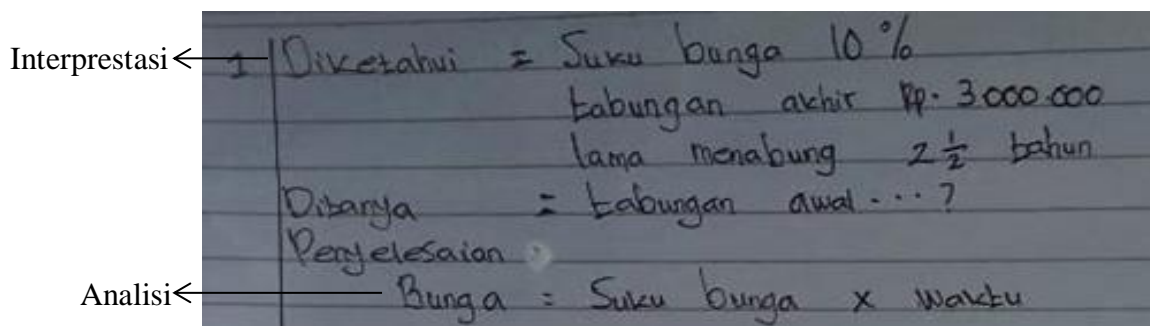 Interprestasi
1 Diketahui = Suku bunga 10 %
tabungan akhir Rp. 3.000.000
lama menabung 2 1/2 tahun
Ditanya = tabungan awal ... ?
Penyelesaian :
Analisi
Bunga = Suku bunga x waktu